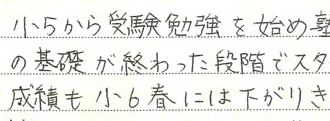 小5から受験勉強を始め塾
の基礎が終わった段階でスタ
成績も小6春には下がりき